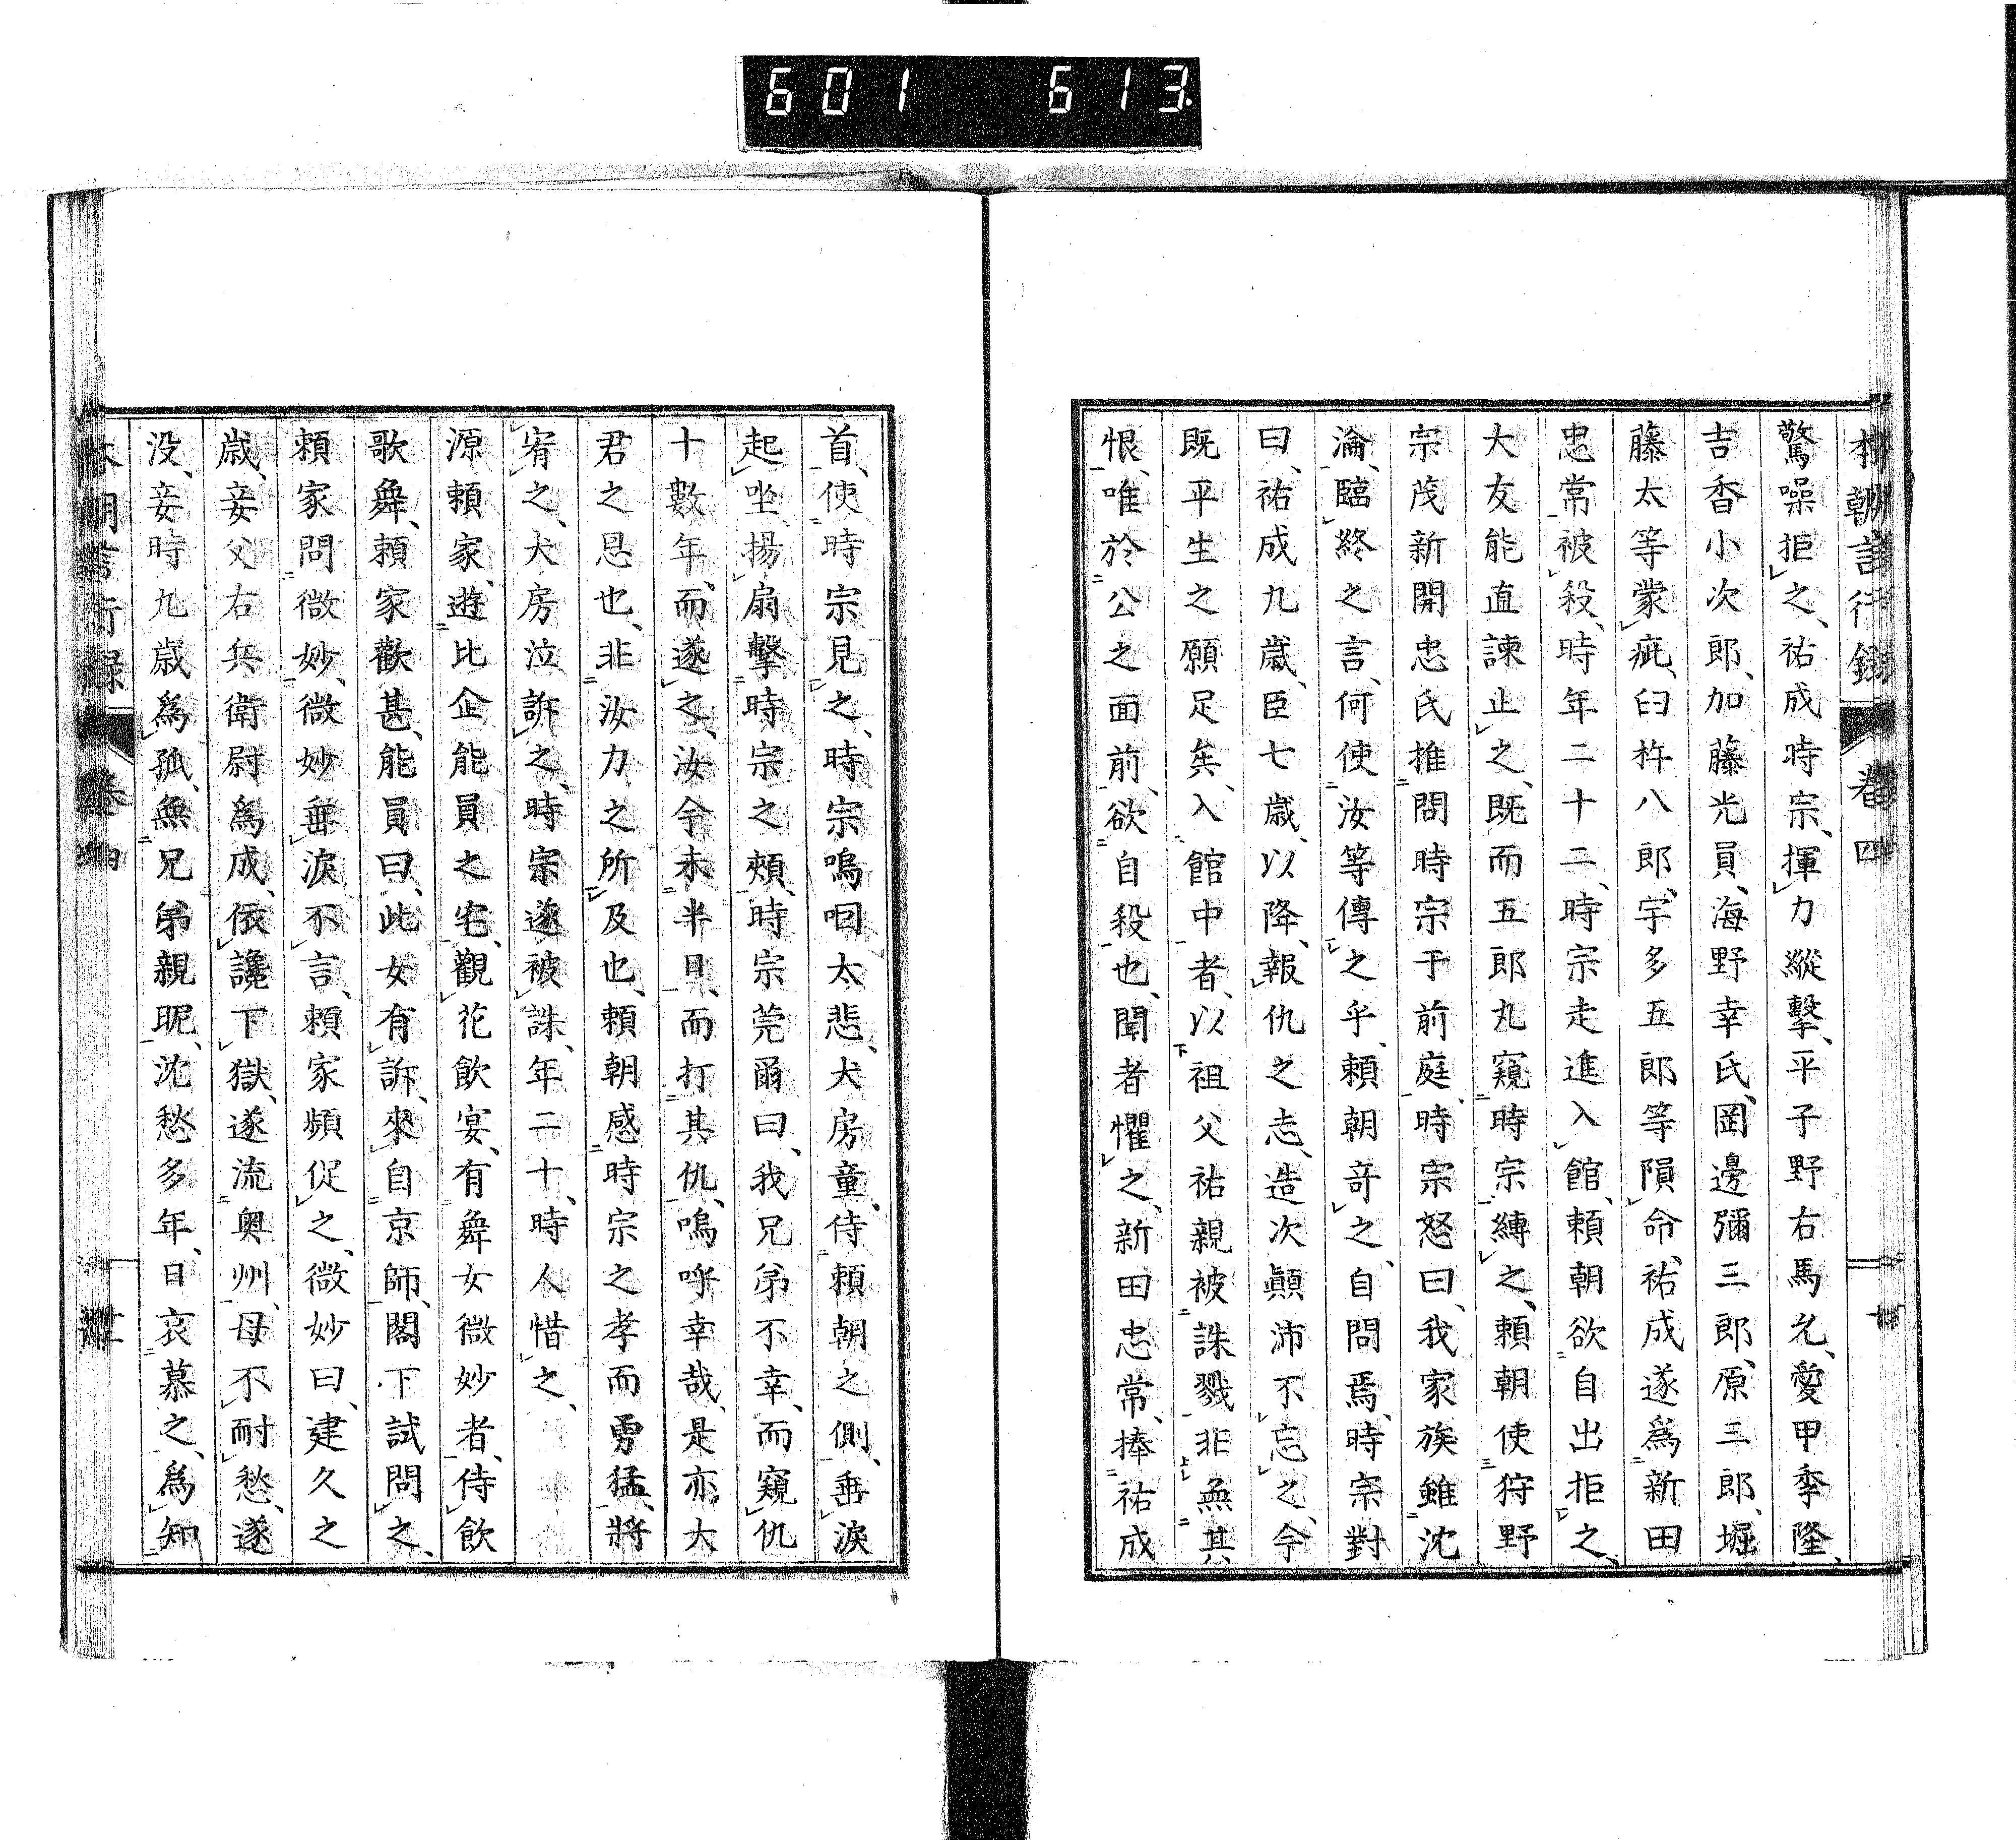 601 613
本朝言行錄 卷四 十
驚噪拒之、祐成時宗、揮力縱擊、平子野右馬允、愛甲季隆、
吉香小次郎、加藤光員、海野幸氏、岡邊彌三郎、原三郎、堀
藤太等蒙疵、臼杵八郎、宇多五郎等隕命、祐成遂爲新田
忠常被殺、時年二十二、時宗走進入館、賴朝欲自出拒之、
大友能直諫止之、既而五郎丸窺時宗縛之、賴朝使狩野
宗茂新開忠氏推問時宗于前庭、時宗怒曰、我家族雖沈
淪、臨終之言、何使汝等傳之乎、賴朝奇之、自問焉、時宗對
曰、祐成九歲、臣七歲、以降、報仇之志、造次顚沛不忘之、今
既平生之願足矣、入館中者、以祖父祐親被誅戮非無其
恨、唯於公之面前、欲自殺也、聞者懼之、新田忠常、捧祐成
首、使時宗見之、時宗嗚咽太悲、犬房童、侍賴朝之側、垂淚
起坐揚扇擊時宗之頰、時宗莞爾曰、我兄弟不幸、而窺仇
十數年、而遂之、汝今未半日、而打其仇、嗚呼幸哉、是亦大
君之恩也、非汝力之所及也、賴朝感時宗之孝而勇猛、將
宥之、犬房泣訴之、時宗遂被誅、年二十、時人惜之、
源賴家、遊比企能員之宅、觀花飮宴、有舞女微妙者、侍飮
歌舞、賴家歡甚、能員曰、此女有訴、來自京師、閣下試問之、
賴家問微妙、微妙垂淚不言、賴家頻促之、微妙曰、建久之
歲、妾父右兵衛尉爲成、依讒下獄、遂流奧州、母不耐愁、遂
没、妾時九歲爲孤、無兄弟親昵、沈愁多年、日哀慕之、爲知
本朝言行錄 卷四